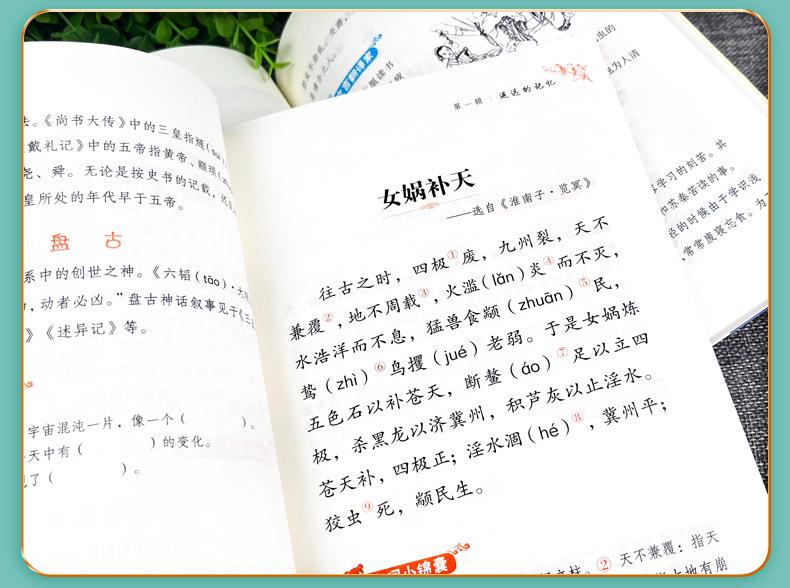 法。《尚书大传》中的三皇指燧(suì
戴礼记》中的五帝指黄帝、颛顼
尧、舜。无论是按史书的记载，还是
皇所处的年代早于五帝。
盘 古
系中的创世之神。《六韬(tāo)·大明
，动者必凶。”盘古神话叙事见于《三五
》《述异记》等。
宇宙混沌一片，像一个( )。
天中有( )的变化。
了( )。
第一辑 | 遥远的记忆
女娲补天
——选自《淮南子·览冥》
往古之时，四极①废，九州裂，天不
兼覆②，地不周载③，火滥(lǎn)炎④而不灭，
水浩洋而不息，猛兽食颛(zhuān)⑤民，
鸷(zhì)⑥鸟攫(jué)老弱。于是女娲炼
五色石以补苍天，断鳌(áo)⑦足以立四
极，杀黑龙以济冀州，积芦灰以止淫水。
苍天补，四极正；淫水涸(hé)⑧，冀州平；
狡虫⑨死，颛民生。
小锦囊
② 天不兼覆：指天
学习的刻苦。其
和苏秦苦读的事。
的时候由于学识浅
，常常废寝忘食。为
也为人清
虫的